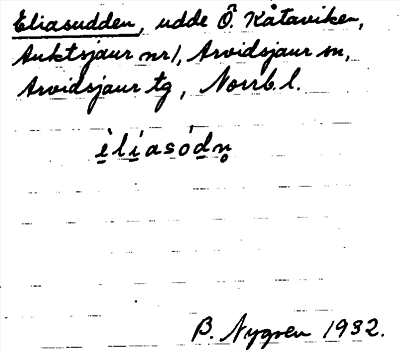 Eliasudden, udde Ö. Kåtaviken,
Auktsjaur nr 1, Arvidsjaur sn,
Arvidsjaur tg, Norrb. l.
èlíasòdn̥
B. Nygren 1932.